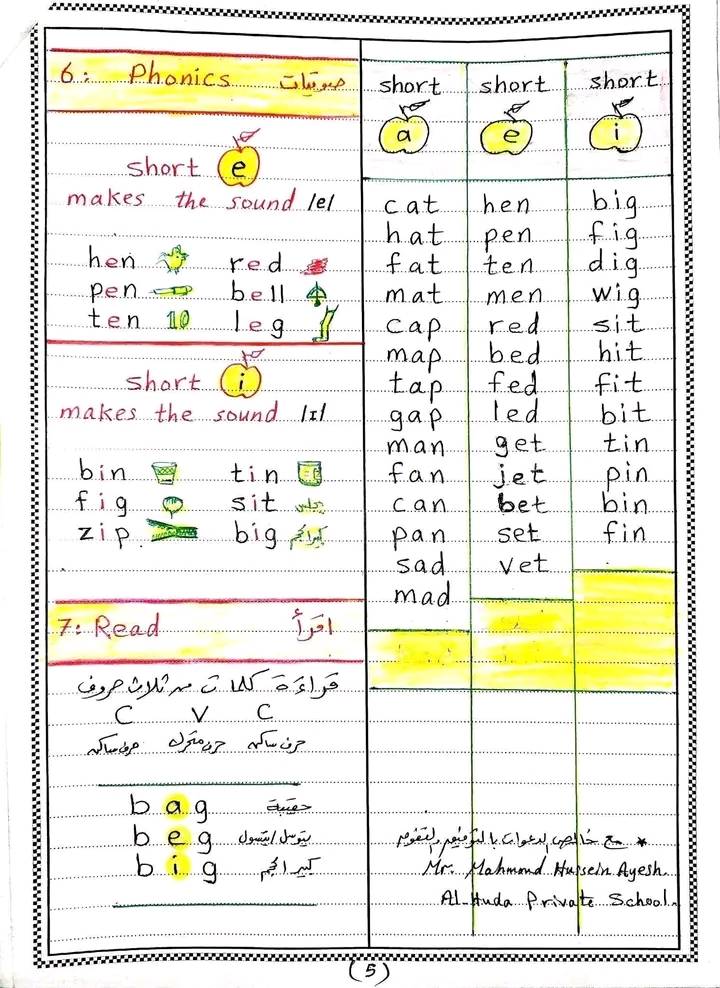 6: Phonics صوتيات
short e
makes the sound /e/
hen red
pen bell
ten 10 leg
short i
makes the sound /ɪ/
bin tin
fig sit يجلس
zip big كبير الحجم
7: Read اقرأ
قراءة كلمات من ثلاث حروف
C V C
حرف ساكن حرف متحرك حرف ساكن
bag حقيبة
beg يتوسل/يتسول
big كبير الحجم
short short short
a e i
cat hen big
hat pen fig
fat ten dig
mat men wig
cap red sit
map bed hit
tap fed fit
gap led bit
man get tin
fan jet pin
can bet bin
pan set fin
sad vet
mad
* مع خالص الدعوات بالتوفيق والتفوق
Mr. Mahmoud Hussein Ayesh.
Al-Huda Private School.
(5)